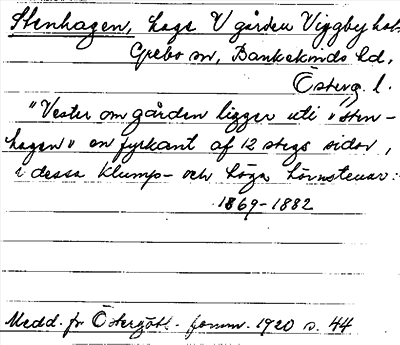 Stenhagen, hage V gården Viggbyholm
Grebo sn, Bankekinds hd,
Österg. l.
"Vester om gården ligger uti "Sten-
hagen" en fyrkant af 12 stegs sidor,
i dessa klump- och höga hörnstenar:
1869-1882
Medd. fr Östergötl. fornm. 1920 s. 44